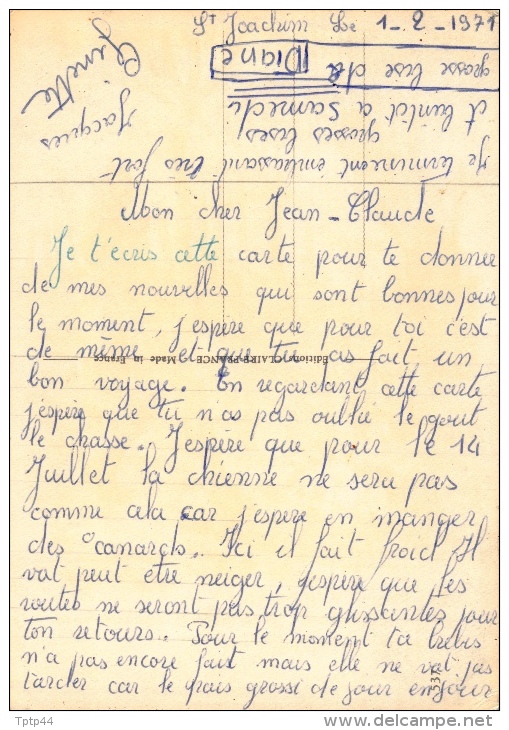 St Joachim Le 1-2-1971
Mon cher Jean-Claude
Je t'écris cette carte pour te donner
de mes nouvelles qui sont bonnes pour
le moment, j'espère que pour toi c'est
de même et que tu as fait un
bon voyage. En regardant cette carte
j'espère que tu n'as pas oublié le gout
de chasse. J'espère que pour le 14
Juillet la chienne ne sera pas
comme cela car j'espère en manger
des canards. Ici il fait froid Il
vat peut etre neiger, j'espère que les
routes ne seront pas trop glissantes pour
ton retours. Pour le moment ta brebis
n'a pas encore fait mais elle ne vat pas
tarder car le pais grossi de jour en jour
Je terminent embrassant très fort
grosses bises
A bientôt a samedi
grosse bise de Diane
Ginette
Jacques
Editions CLAIRE FRANCE Made in France
Tptp44
www.delcampe.net